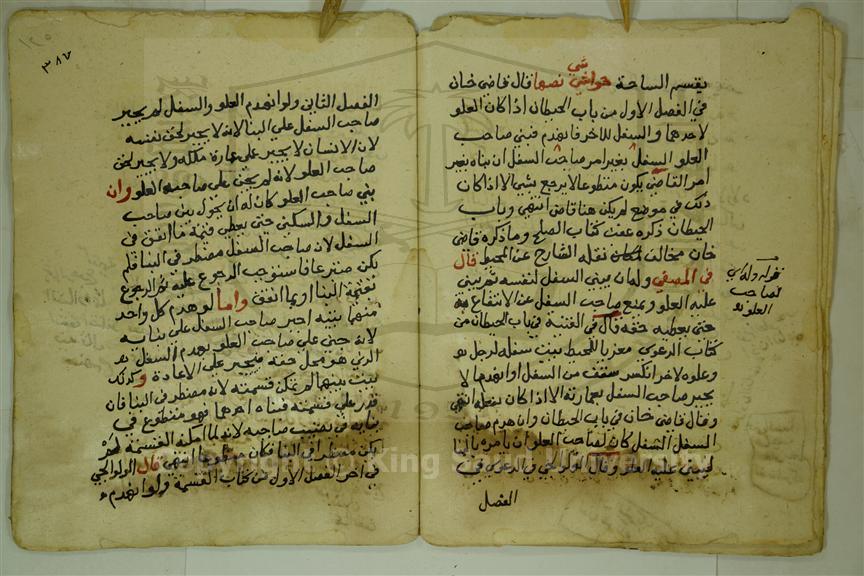 يقسم الساحة حواشي نصها قال قاضي خان
شي
في الفصل الاول من باب الحيطان اذا كان العلو
لاحدهما والسفل للاخر فانهدم فبنى صاحب
العلو السفل بغير امر صاحب السفل ان بناه بغير
امر القاضي يكون متطوعا لا يرجع بشي الا اذا كان
ذلك في موضع لم يكن هنا قاضي انتهى وباب
الحيطان ذكره عقب كتاب الصلح وما ذكره قاضي
خان مخالف لما نقله الشارح عن المحيط قال
في المصفى وله ان يبني السفل لنفسه ثم يبني
عليه العلو ويمنع صاحب السفل عن الانتفاع به
حتى يعطيه حقه قال في القنية في باب الحيطان من
كتاب الدعوى معزيا للمحيط بيت سفله لرجل
وعلوه لاخر انكسر سقف من السفل او انهدما لا
يجبر صاحب السفل بعمارته الا اذا كان بفعله انتهى
وقال قاضي خان في باب الحيطان وان هدم صاحب
السفل السفل كان لصاحب العلو ان يامره بالبنا
ليبني عليه العلو وقال الولوالجي في الدعوى في
الفصل
قوله
لصاحب
العلو
٣٨٧
الفصل الثاني ولو انهدم العلو والسفل لم يجبر
صاحب السفل على البنا لانه لا يجبر لحق نفسه
لان الانسان لا يجبر على عمارة ملكه ولا يجبر لحق
صاحب العلو لانه لم يجن على صاحب العلو وان
بنى صاحب العلو كان له ان يحول بين صاحب
السفل والسكنى حتى يعطى قيمة ما انفق في
السفل لان صاحب السفل مضطر في البنا فلم
يكن متبرعا فاستوجب الرجوع عليه ثم الرجوع
بقيمة البنا او بما انفق واما لو هدم كل واحد
منهما بيته اجبر صاحب السفل على بنائه
لانه جنى على صاحب العلو بهدم السفل
الذي هو محل حقه فيجبر على الاعادة وكذلك
بيت بينهما لم يمكن قسمته لانه مضطر في البنا فان
قدر على قسمته فبناه احدهما فهو متطوع في
بنائه في نصيب صاحبه لانه لما امكنه القسمة لم
يكن مضطرا في البنا فكان متطوعا انتهى قال الولوالجي
في اخر الفصل الاول من كتاب القسمة ولو انهدم